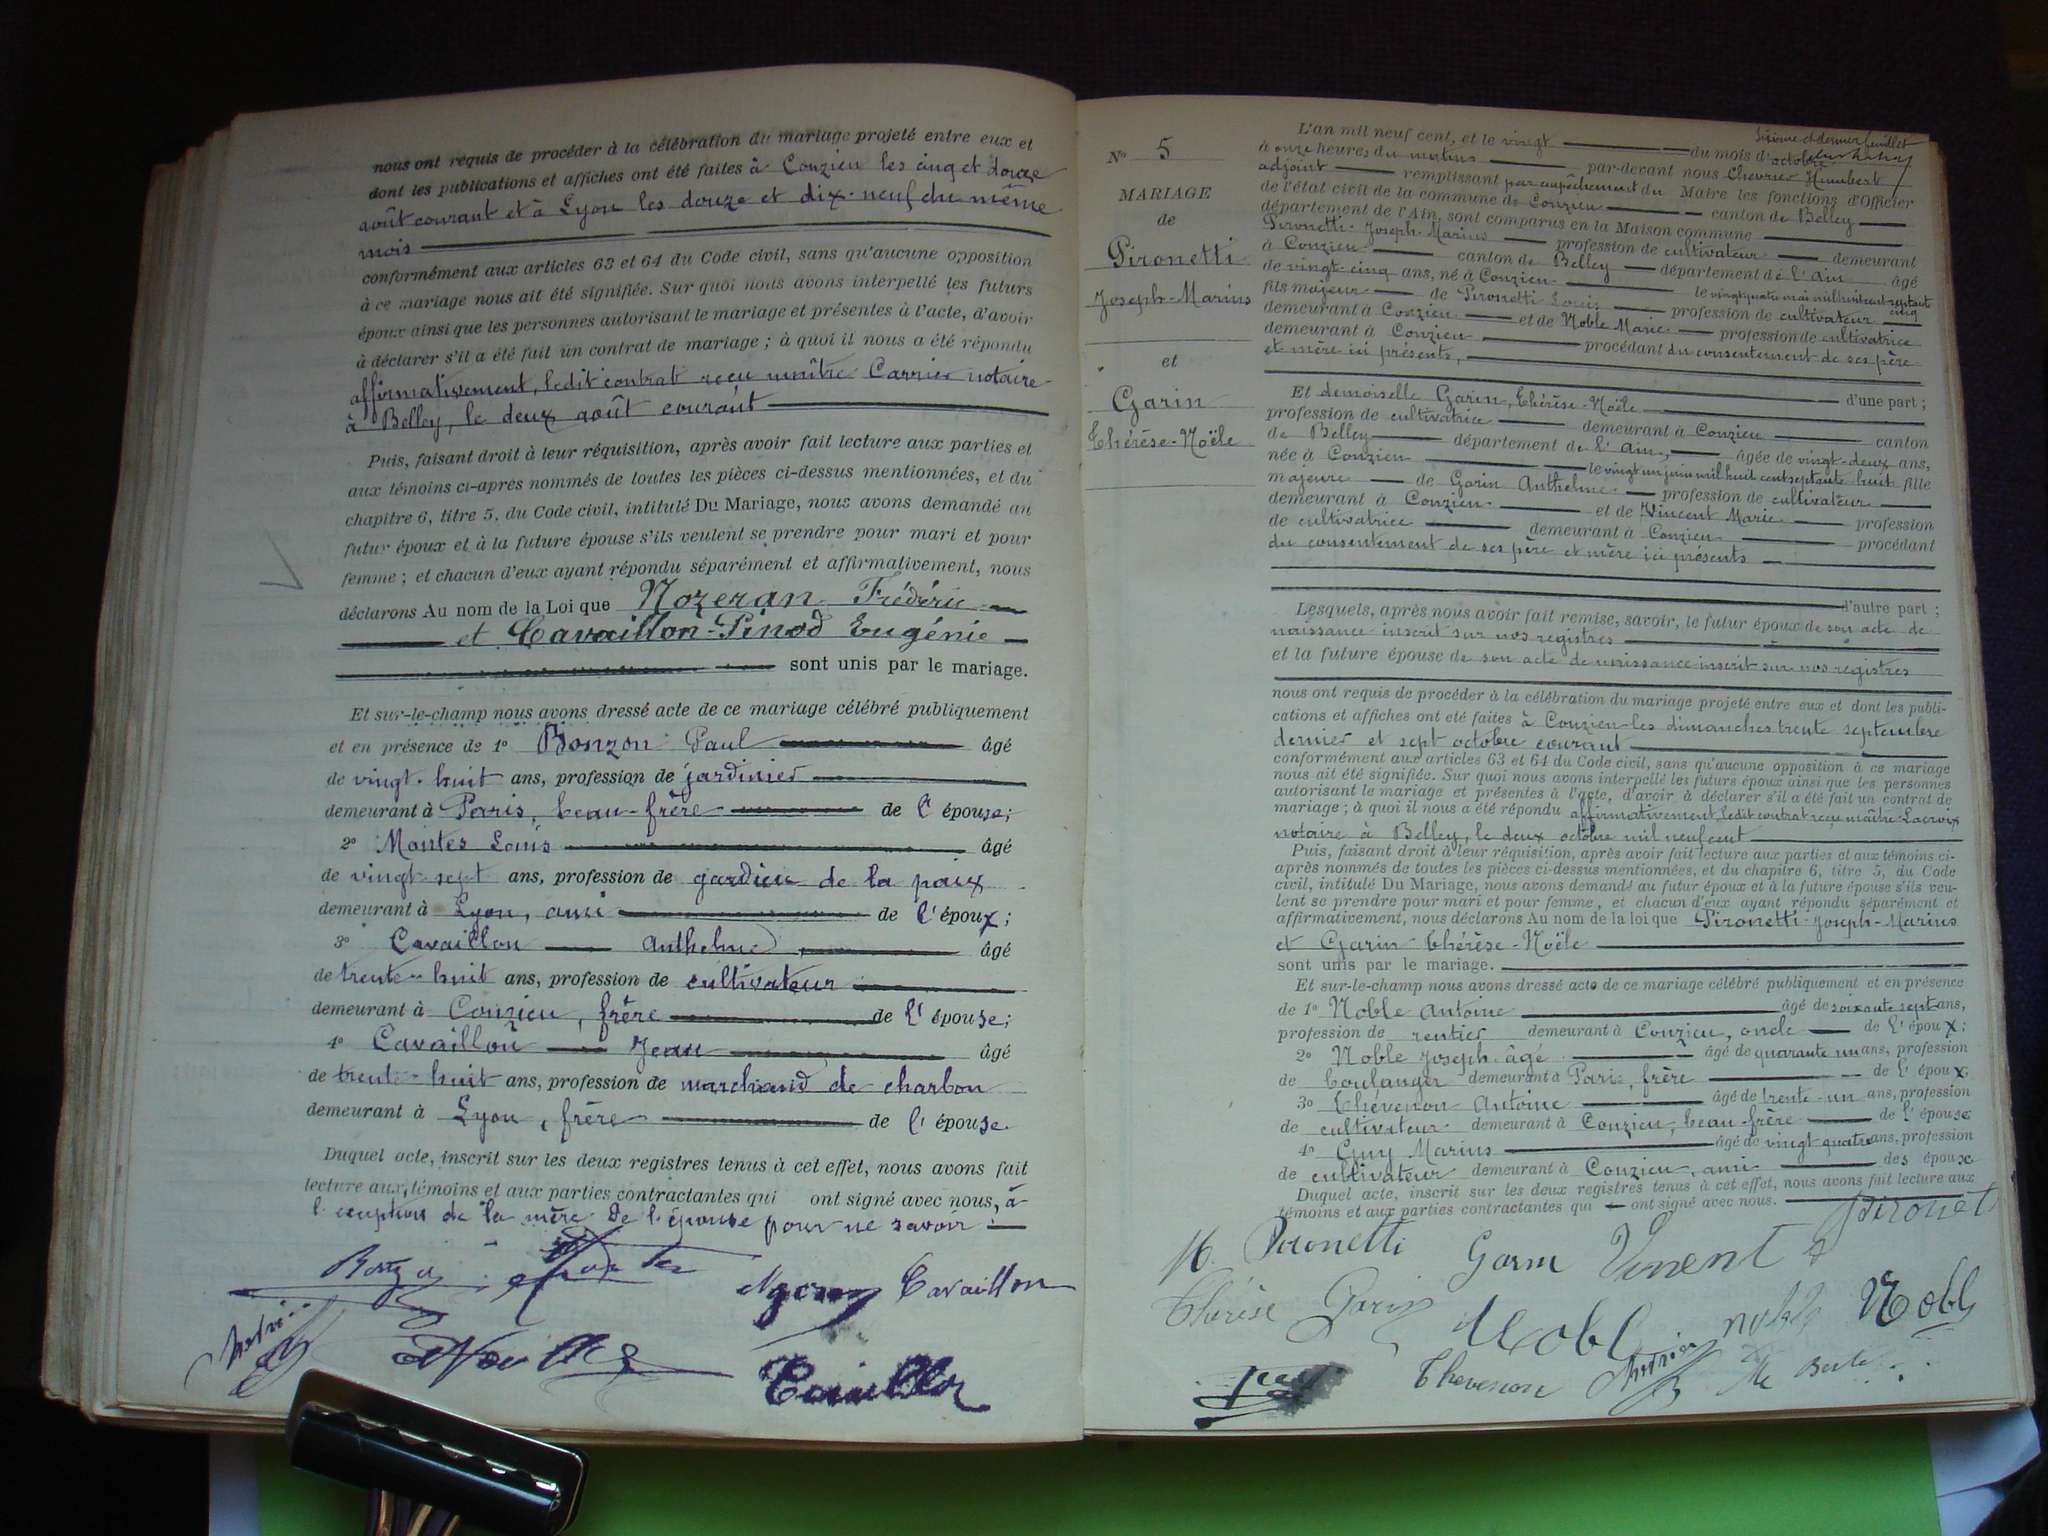 nous ont requis de procéder à la célébration du mariage projeté entre eux et
dont les publications et affiches ont été faites à Conzieu les cinq et douze
août courant et à Lyon les douze et dix-neuf du même
mois
conformément aux articles 63 et 64 du Code civil, sans qu'aucune opposition
à ce mariage nous ait été signifiée. Sur quoi nous avons interpellé les futurs
époux ainsi que les personnes autorisant le mariage et présentes à l'acte, d'avoir
à déclarer s'il a été fait un contrat de mariage ; à quoi il nous a été répondu
affirmativement, ledit contrat reçu maître Carrier notaire
à Belley, le deux août courant
Puis, faisant droit à leur réquisition, après avoir fait lecture aux parties et
aux témoins ci-après nommés de toutes les pièces ci-dessus mentionnées, et du
chapitre 6, titre 5, du Code civil, intitulé Du Mariage, nous avons demandé au
futur époux et à la future épouse s'ils veulent se prendre pour mari et pour
femme ; et chacun d'eux ayant répondu séparément et affirmativement, nous
déclarons Au nom de la Loi que Nozeran Frédéric
et Cavaillon-Pinod Eugénie
sont unis par le mariage.
Et sur-le-champ nous avons dressé acte de ce mariage célébré publiquement
et en présence de 1° Bonzon Paul âgé
de vingt-huit ans, profession de jardinier
demeurant à Paris, beau-frère de l'épouse;
2° Mantes Louis âgé
de vingt-sept ans, profession de gardien de la paix
demeurant à Lyon, ami de l'époux;
3° Cavaillon Anthelme, âgé
de trente-huit ans, profession de cultivateur
demeurant à Conzieu, frère de l'épouse;
4° Cavaillon Jean âgé
de trente-huit ans, profession de marchand de charbon
demeurant à Lyon, frère de l'épouse.
Duquel acte, inscrit sur les deux registres tenus à cet effet, nous avons fait
lecture aux témoins et aux parties contractantes qui ont signé avec nous, à
l'exception de la mère de l'épouse pour ne savoir
Cavaillon
N° 5
MARIAGE
de
Pironetti
Joseph-Marius
et
Garin
Thérèse-Noële
L'an mil neuf cent, et le vingt du mois d'octobre
à onze heures du matin par-devant nous Chevrier Humbert
adjoint remplissant par empêchement du Maire les fonctions d'Officier
de l'état civil de la commune de Conzieu canton de Belley
département de l'Ain, sont comparus en la Maison commune
Pironetti Joseph-Marius profession de cultivateur demeurant
à Conzieu canton de Belley département de l'Ain âgé
de vingt-cinq ans, né à Conzieu le vingt quatre mai mil huit cent septante cinq
fils majeur de Pironetti Louis profession de cultivateur
demeurant à Conzieu et de Noble Marie profession de cultivatrice
demeurant à Conzieu procédant du consentement de ses père
et mère ici présents,
d'une part ;
Et demoiselle Garin, Thérèse-Noële
profession de cultivatrice demeurant à Conzieu canton
de Belley département de l'Ain, âgée de vingt-deux ans,
née à Conzieu le vingt un juin mil huit cent septante huit fille
majeure de Garin Anthelme profession de cultivateur
demeurant à Conzieu et de Vincent Marie profession
de cultivatrice demeurant à Conzieu procédant
du consentement de ses père et mère ici présents
d'autre part ;
Lesquels, après nous avoir fait remise, savoir, le futur époux de son acte de
naissance inscrit sur nos registres
et la future épouse de son acte de naissance inscrit sur nos registres
nous ont requis de procéder à la célébration du mariage projeté entre eux et dont les publi-
cations et affiches ont été faites à Conzieu les dimanches trente septembre
dernier et sept octobre courant
conformément aux articles 63 et 64 du Code civil, sans qu'aucune opposition à ce mariage
nous ait été signifiée. Sur quoi nous avons interpellé les futurs époux ainsi que les personnes
autorisant le mariage et présentes à l'acte, d'avoir à déclarer s'il a été fait un contrat de
mariage ; à quoi il nous a été répondu affirmativement, ledit contrat reçu maître Lacroix
notaire à Belley, le deux octobre mil neuf cent
Puis, faisant droit à leur réquisition, après avoir fait lecture aux parties et aux témoins ci-
après nommés de toutes les pièces ci-dessus mentionnées, et du chapitre 6, titre 5, du Code
civil, intitulé Du Mariage, nous avons demandé au futur époux et à la future épouse s'ils veu-
lent se prendre pour mari et pour femme, et chacun d'eux ayant répondu séparément et
affirmativement, nous déclarons Au nom de la loi que Pironetti Joseph-Marius
et Garin Thérèse-Noële
sont unis par le mariage.
Et sur-le-champ nous avons dressé acte de ce mariage célébré publiquement et en présence
de 1° Noble Antoine âgé de soixante sept ans,
profession de rentier demeurant à Conzieu, oncle de l'époux;
2° Noble Joseph âgé âgé de quarante un ans, profession
de boulanger demeurant à Paris, frère de l'époux;
3° Thévenon Antoine âgé de trente-un ans, profession
de cultivateur demeurant à Conzieu, beau-frère de l'épouse
4° Guy Marius âgé de vingt quatre ans, profession
de cultivateur demeurant à Conzieu, ami des épouse
Duquel acte, inscrit sur les deux registres tenus à cet effet, nous avons fait lecture aux
témoins et aux parties contractantes qui ont signé avec nous.
Pironet
M. Pironetti Garin Vincent
Thérèse Garin Noble Noble Noble
Guy Thevenon